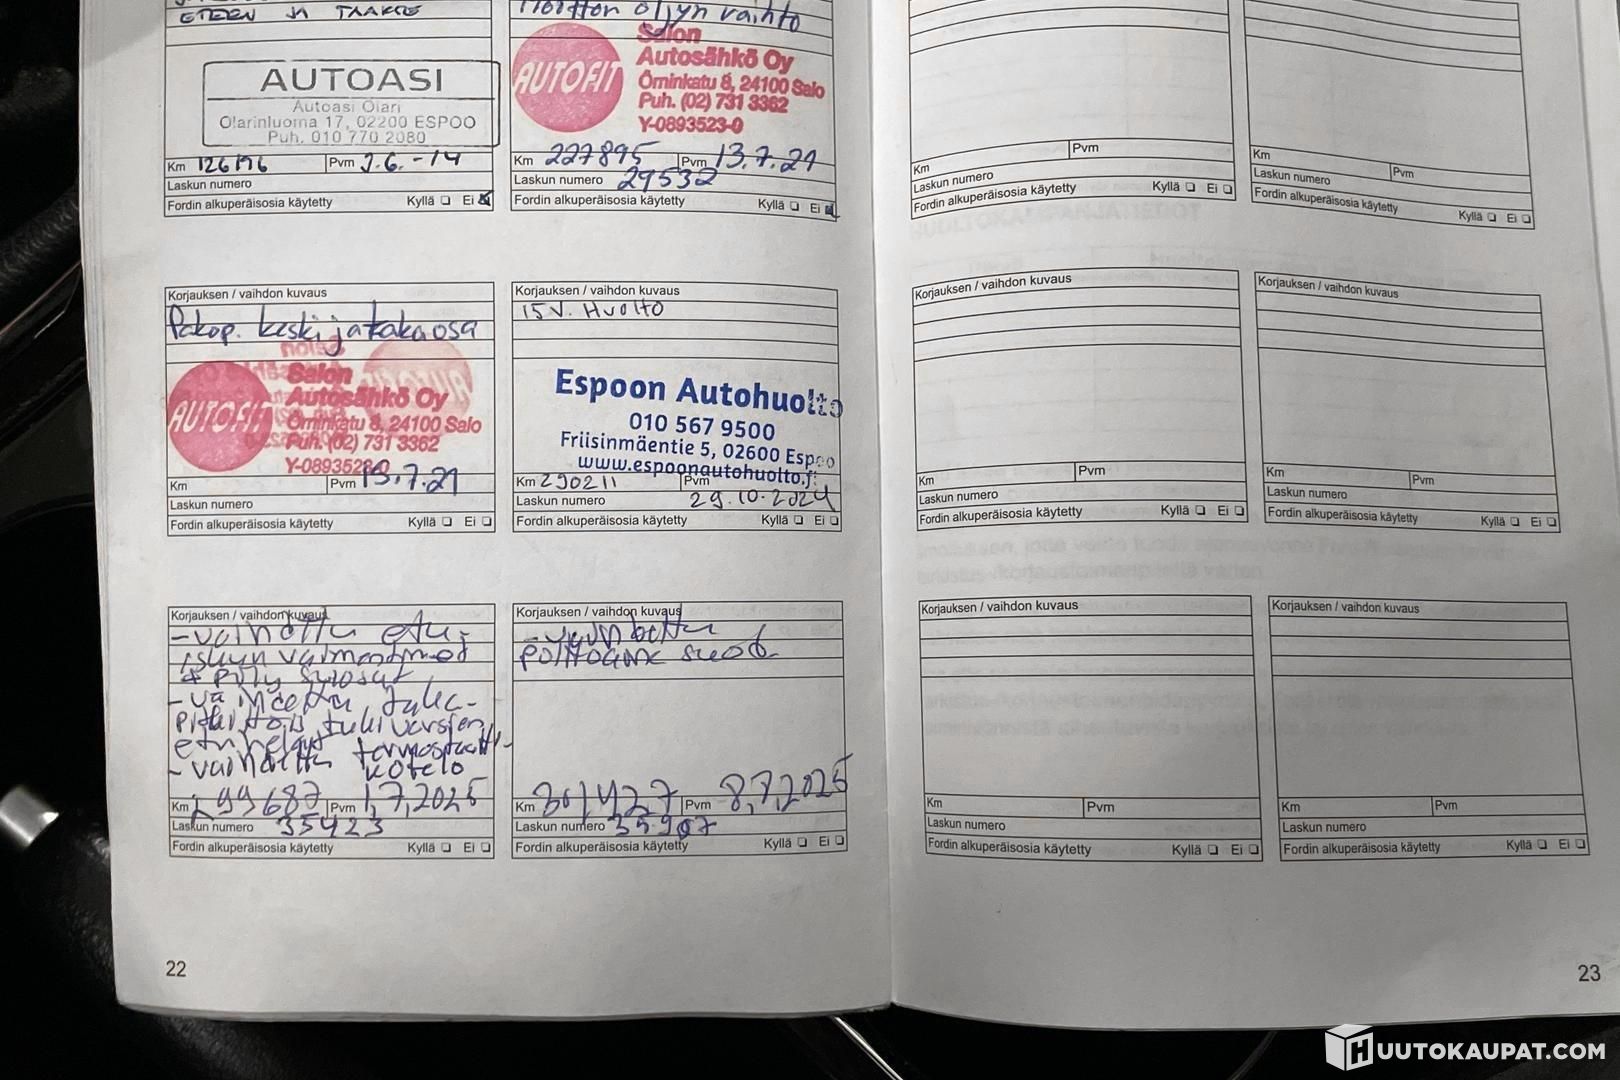 ETEEN JA TAAKSE
AUTOASI
Autoasi Olari
Olarinluoma 17, 02200 ESPOO
Puh. 010 770 2080
Km 126196 Pvm 9.6.-14
Laskun numero
Fordin alkuperäisosia käytetty Kyllä Ei
Moottoriöljyn vaihto
AUTOFIT
Salon
Autosähkö Oy
Örninkatu 8, 24100 Salo
Puh. (02) 731 3362
Y-0893523-0
Km 227895 Pvm 13.7.21
Laskun numero 29532
Fordin alkuperäisosia käytetty Kyllä Ei
Korjauksen / vaihdon kuvaus
Pakop. keski ja takaosa
AUTOFIT
Salon
Autosähkö Oy
Örninkatu 8, 24100 Salo
Puh. (02) 731 3362
Y-0893523-0
Km Pvm 13.7.21
Laskun numero
Fordin alkuperäisosia käytetty Kyllä Ei
Korjauksen / vaihdon kuvaus
15V. HUOLTO
Espoon Autohuolto
010 567 9500
Friisinmäentie 5, 02600 Espoo
www.espoonautohuolto.fi
Km 290211 Pvm
Laskun numero 29.10.2024
Fordin alkuperäisosia käytetty Kyllä Ei
Korjauksen / vaihdon kuvaus
- vaihdettu etu-
iskunvaimentimet
+ pölysuojat
- vaihdettu taka-
pitkittäistukivarsien
etuhelat
- vaihdettu termostaatti-
kotelo
Km 299687 Pvm 1,7,2025
Laskun numero 35423
Fordin alkuperäisosia käytetty Kyllä Ei
Korjauksen / vaihdon kuvaus
- vaihdettu
polttoaine suod.
Km 301,427 Pvm 8,7,2025
Laskun numero 35907
Fordin alkuperäisosia käytetty Kyllä Ei
22
Km Pvm
Laskun numero
Fordin alkuperäisosia käytetty Kyllä Ei
Km Pvm
Laskun numero
Fordin alkuperäisosia käytetty Kyllä Ei
Korjauksen / vaihdon kuvaus
Km Pvm
Laskun numero
Fordin alkuperäisosia käytetty Kyllä Ei
Korjauksen / vaihdon kuvaus
Km Pvm
Laskun numero
Fordin alkuperäisosia käytetty Kyllä Ei
Korjauksen / vaihdon kuvaus
Km Pvm
Laskun numero
Fordin alkuperäisosia käytetty Kyllä Ei
Korjauksen / vaihdon kuvaus
Km Pvm
Laskun numero
Fordin alkuperäisosia käytetty Kyllä Ei
23
HUUTOKAUPAT.COM